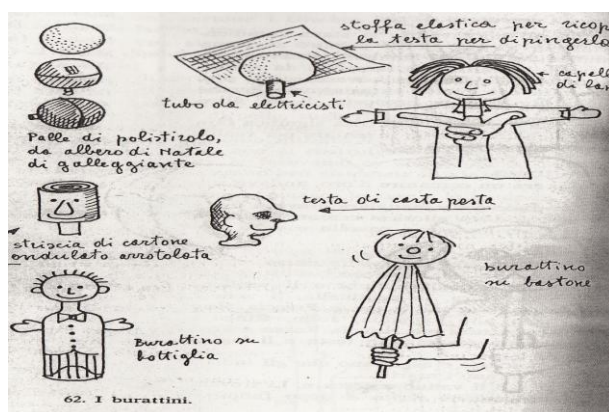 stoffa elastica per ricop
la testa per dipingerlo
tubo da elettricisti
capell
di lan
Palle di polistirolo,
da albero di Natale
di galleggiante
testa di carta pesta
striscia di cartone
ondulato arrotolata
burattino
su bastone
Burattino su
bottiglia
62. I burattini.